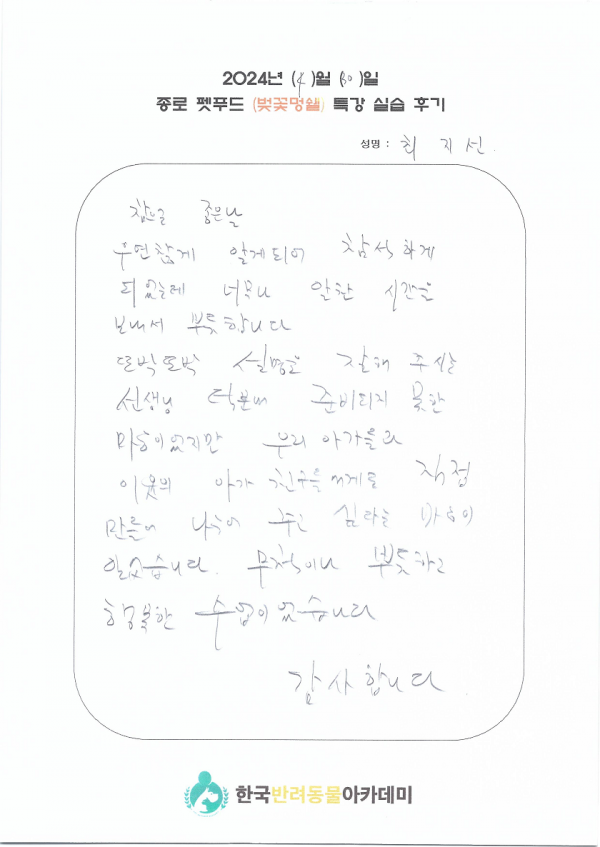 2024년 (4)월 (30)일
종로 펫푸드 (벚꽃멍쉘) 특강 실습 후기
성명 : 최 지 선.
참으로 좋은날
우연찮게 알게되어 참석하게
되었는데 너무나 알찬 시간을
보내서 뿌듯합니다
또박또박 설명을 잘해 주시는
선생님 덕분에 준비되지 못한
마음이었지만 우리 아가들과
이웃의 아가 친구들에게도 직접
만들어 나누어 주고 싶다는 마음이
일었습니다. 무척이나 뿌듯하고
행복한 수업이었습니다
감사합니다
한국반려동물아카데미